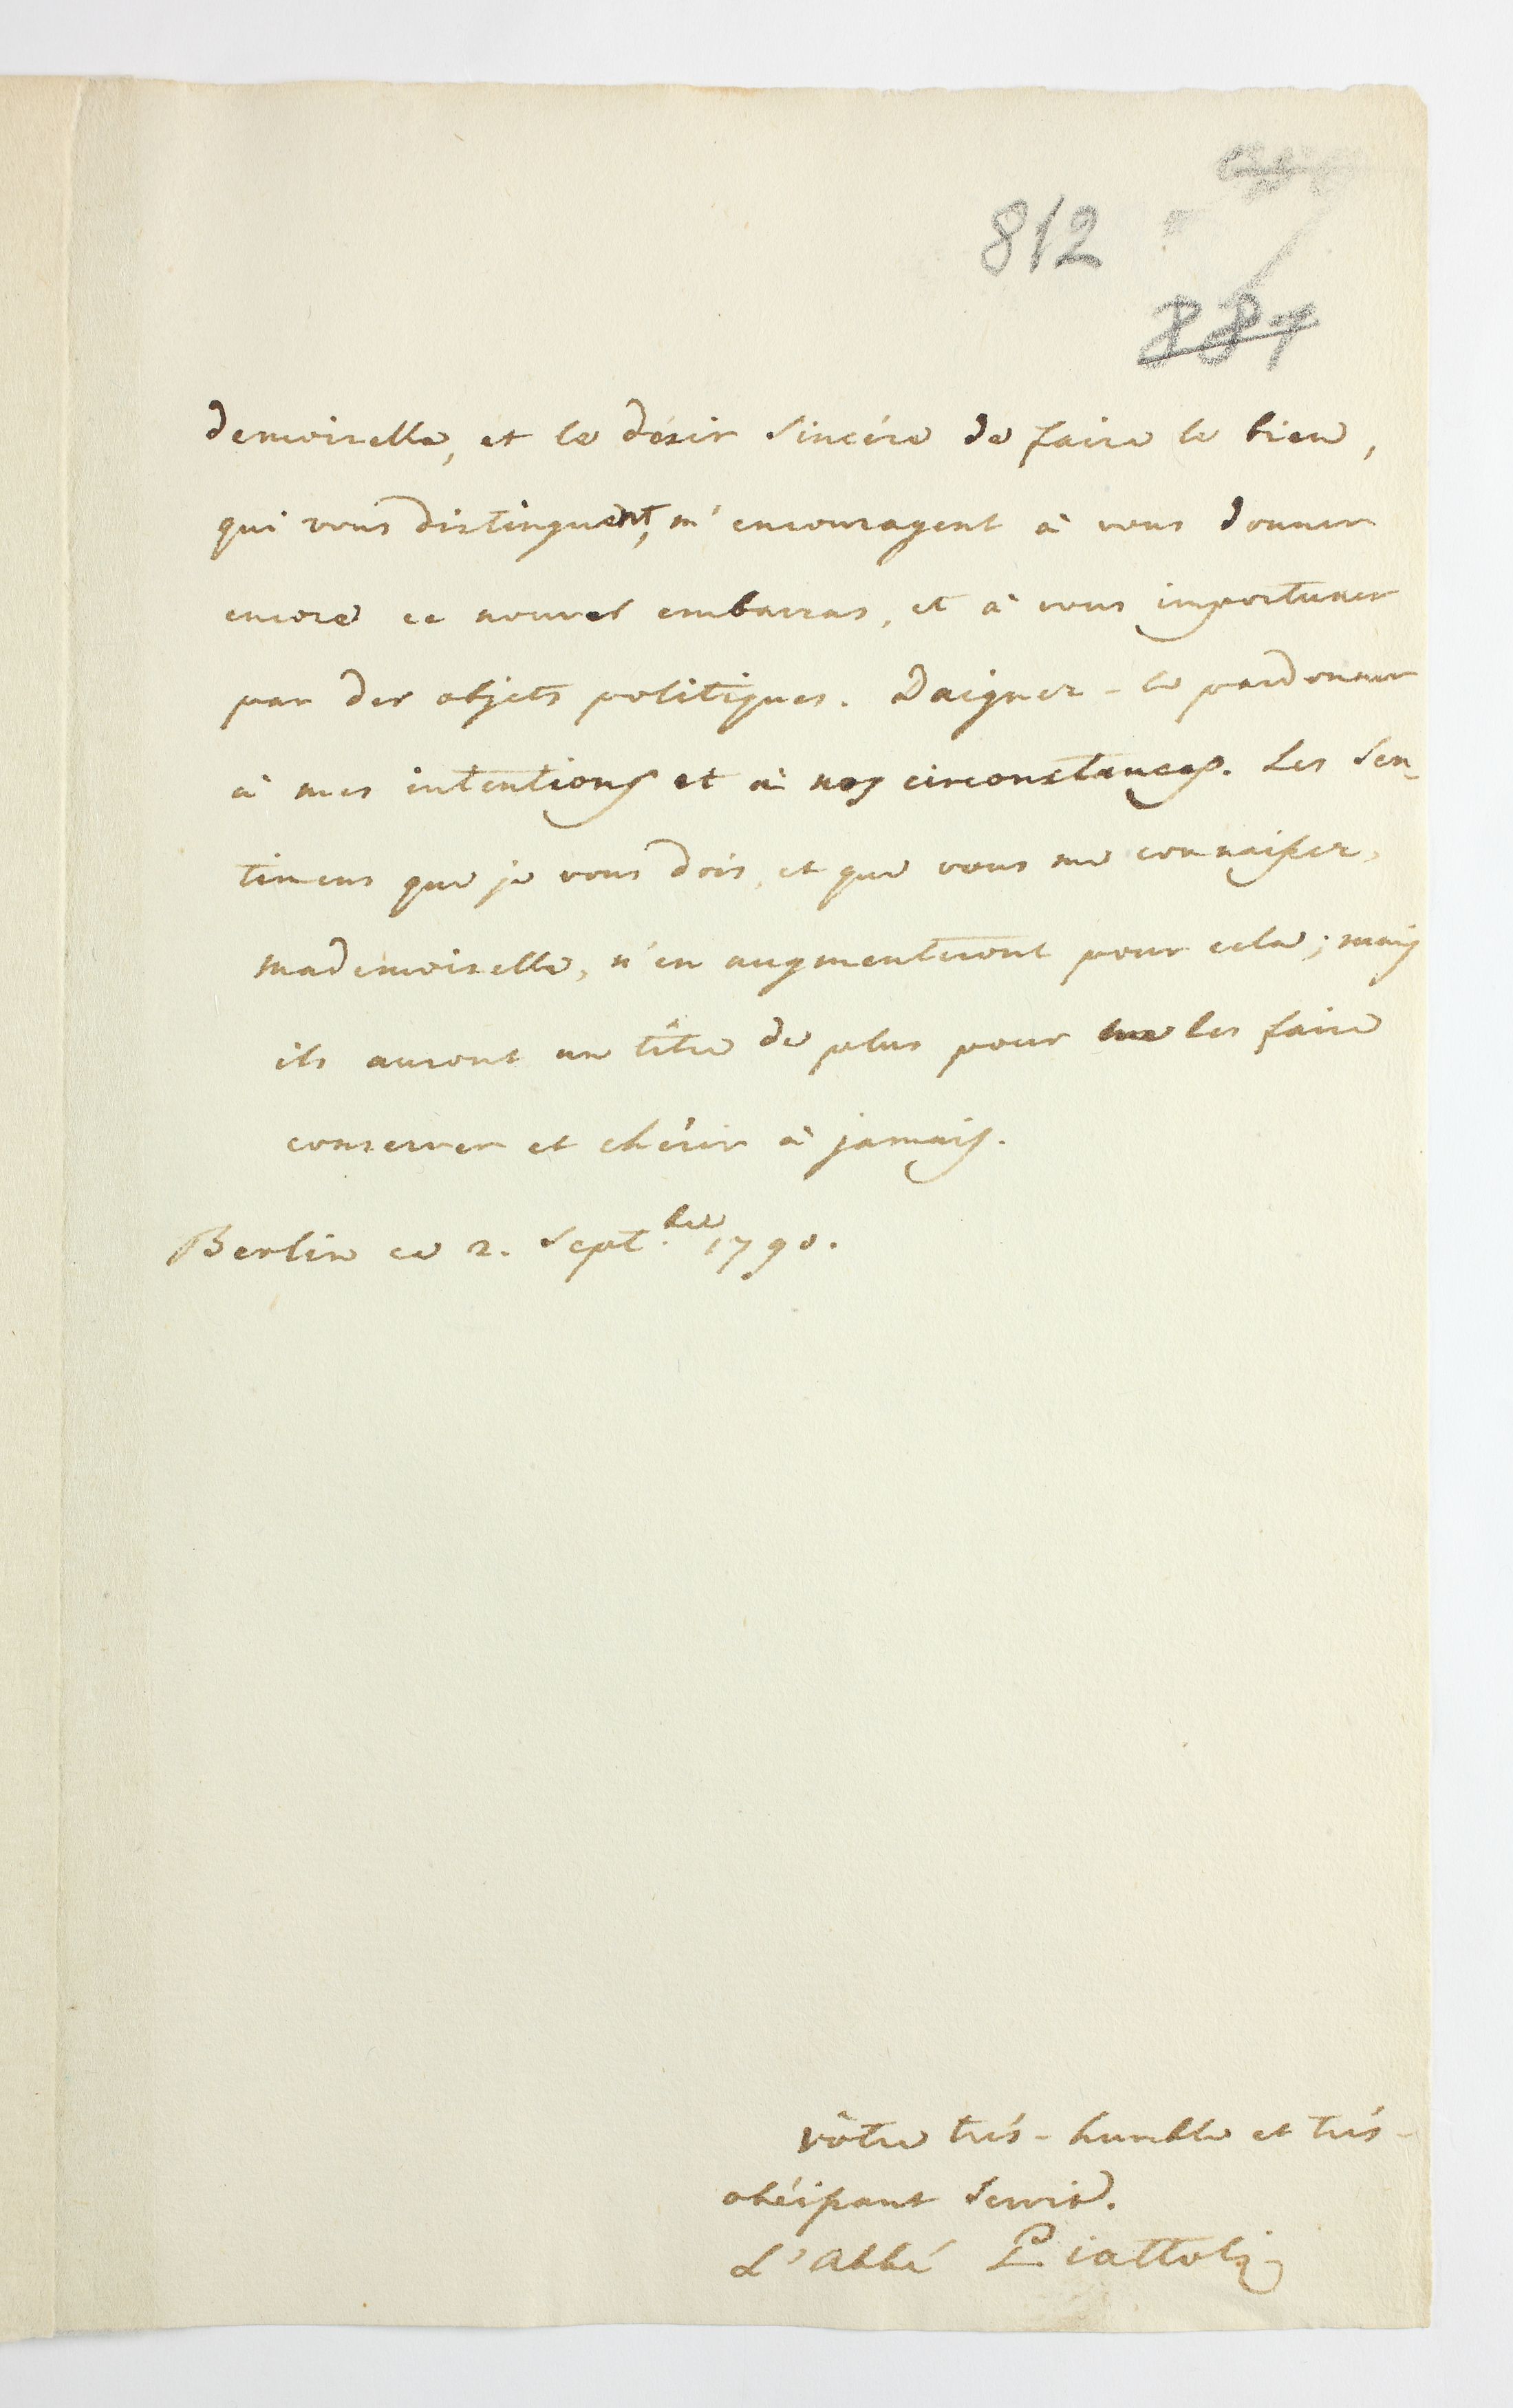 812
887
demoiselle, et le désir sincére de faire le bien,
qui vous distinguent, m'encouragent à vous donner
encore ce nouvel embarras, et à vous importuner
par des objets politiques. Daignez-le pardonner
à mes intentions et à nos circonstances. Les sen-
timens que je vous dois, et que vous me connaissez,
mademoiselle, n'en augmenteront pour cela; mais
ils auront un tître de plus pour les faire
conserver et chérir à jamais.
Berlin ce 2. Sept.bre 1790.
vôtre trés-humble et trés-
obéissant servit.
L'Abbé Piattoli